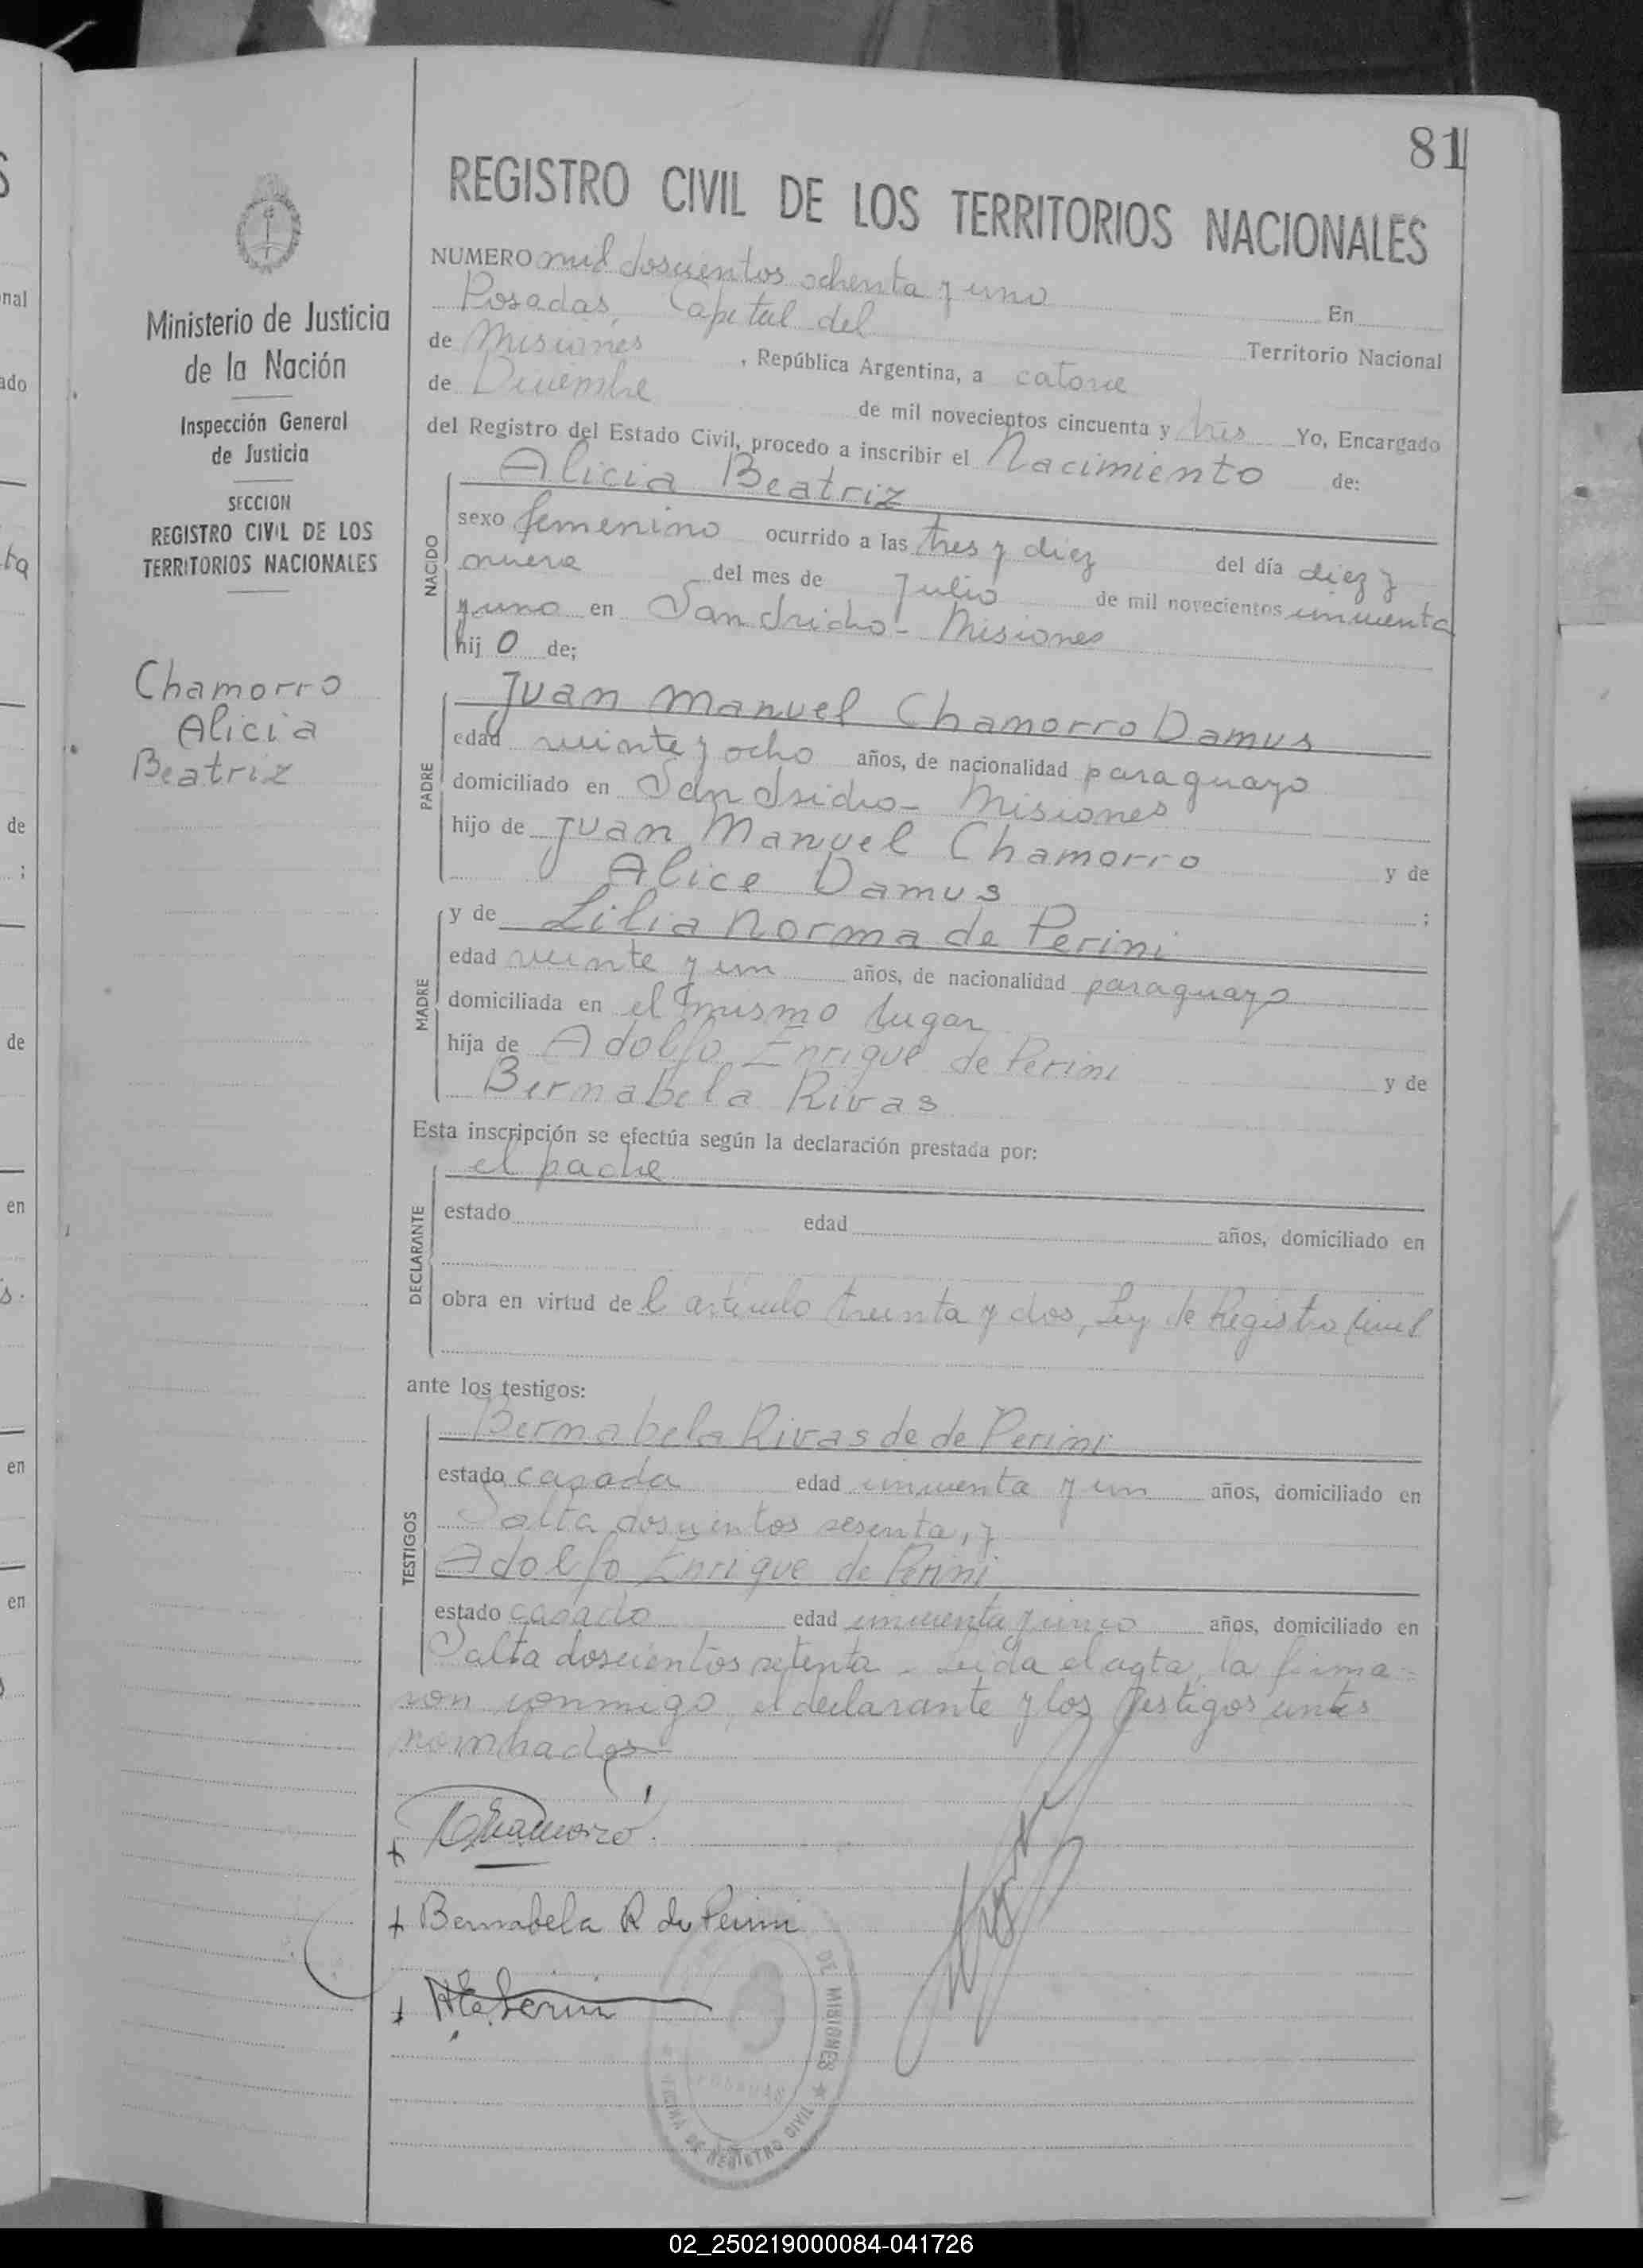 81
REGISTRO CIVIL DE LOS TERRITORIOS NACIONALES
Ministerio de Justicia
de la Nación
Inspección General
de Justicia
SECCION
REGISTRO CIVIL DE LOS
TERRITORIOS NACIONALES
Chamorro
Alicia
Beatriz
NUMERO mil doscientos ochenta y uno En
Posadas, Capital del Territorio Nacional
de Misiones, República Argentina, a catorce
de Diciembre de mil novecientos cincuenta y tres Yo, Encargado
del Registro del Estado Civil, procedo a inscribir el Nacimiento de:
NACIDO
Alicia Beatriz
sexo femenino ocurrido a las tres y diez del día diez y
nueve del mes de Julio de mil novecientos cincuenta
y uno en San Isidro - Misiones
hij o de;
PADRE
Juan Manuel Chamorro Damus
edad veinte y ocho años, de nacionalidad paraguayo
domiciliado en San Isidro - Misiones
hijo de Juan Manuel Chamorro y de
Alice Damus ;
MADRE
y de Lilia Norma de Perini
edad veinte y un años, de nacionalidad paraguayo
domiciliada en el mismo lugar
hija de Adolfo Enrique de Perini y de
Bernabela Rivas
Esta inscripción se efectúa según la declaración prestada por:
DECLARANTE
el padre
estado edad años, domiciliado en
obra en virtud de l artículo treinta y dos, Ley de Registro Civil
ante los testigos:
TESTIGOS
Bernabela Rivas de de Perini
estado casada edad cincuenta y un años, domiciliado en
Salta doscientos sesenta, y
Adolfo Enrique de Perini
estado casado edad cincuenta y cinco años, domiciliado en
Salta doscientos setenta - Leída el acta, la firma=
ron conmigo, el declarante y los testigos antes
nombrados
Chamorro
Bernabela R de Perini
AEdePerini
DE MISIONES ★
OFICINA DE REGISTRO CIVIL
POSADAS
02_250219000084-041726